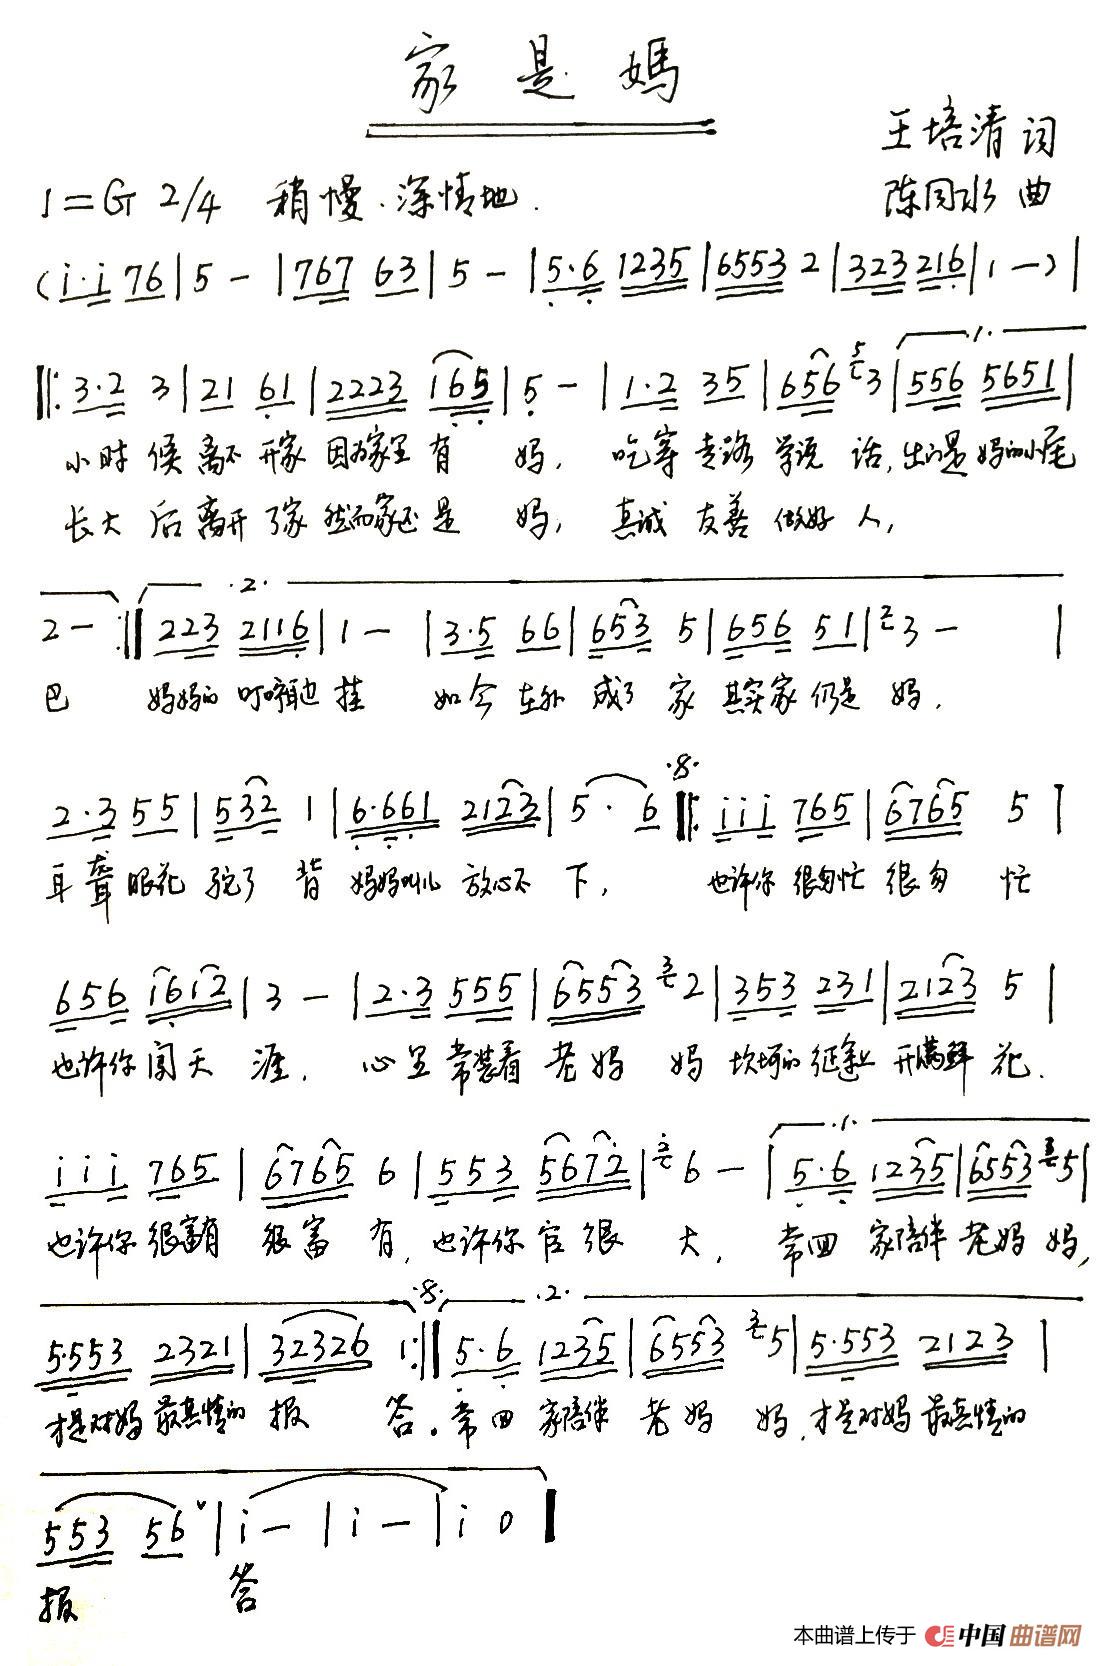 家是媽
王培清 词
1=G 2/4 稍慢.深情地. 陈同水 曲
(i·i 76|5-|767 63|5-|5·6 1235|6553 2|323 216|1-)|
·1.
‖:3·2 3|21 61|2223 165|5-|1·2 35|656 5 3|556 5651|
小时候离不开家因为家里有妈,吃穿走路学说话,出门是妈的小尾
长大后离开了家然而家还是妈,真诚友善做好人,
·2·
2-:‖223 2116|1-|3·5 66|653 5|656 51|2 3-|
巴 妈妈的叮咛耳边挂 如今在外成了家其实家仍是妈.
·8·
2·3 55|532 1|6·661 2123|5·6‖:iii 765|6765 5|
耳聋眼花驼了背妈妈叫儿放心不下, 也许你很匆忙很匆忙
656 i6i2|3-|2·3 555|6553 3 2|353 231|2123 5|
也许你闯天涯. 心里常装着老妈妈 坎坷的征途上开满鲜花.
·1·
iii 765|6765 6|553 5672|2 6-|5·6 1235|6553 3 5|
也许你很富有很富有,也许你官很大, 常回家陪伴老妈妈,
·8· ·2·
5·553 2321|32326 1:‖5·6 1235|6553 3 5|5·553 2123|
才是对妈最真情的报答。常回家陪伴老妈妈,才是对妈最真情的
553 56ᵛ|i-|i-|i 0‖
报答
本曲谱上传于 中国曲谱网